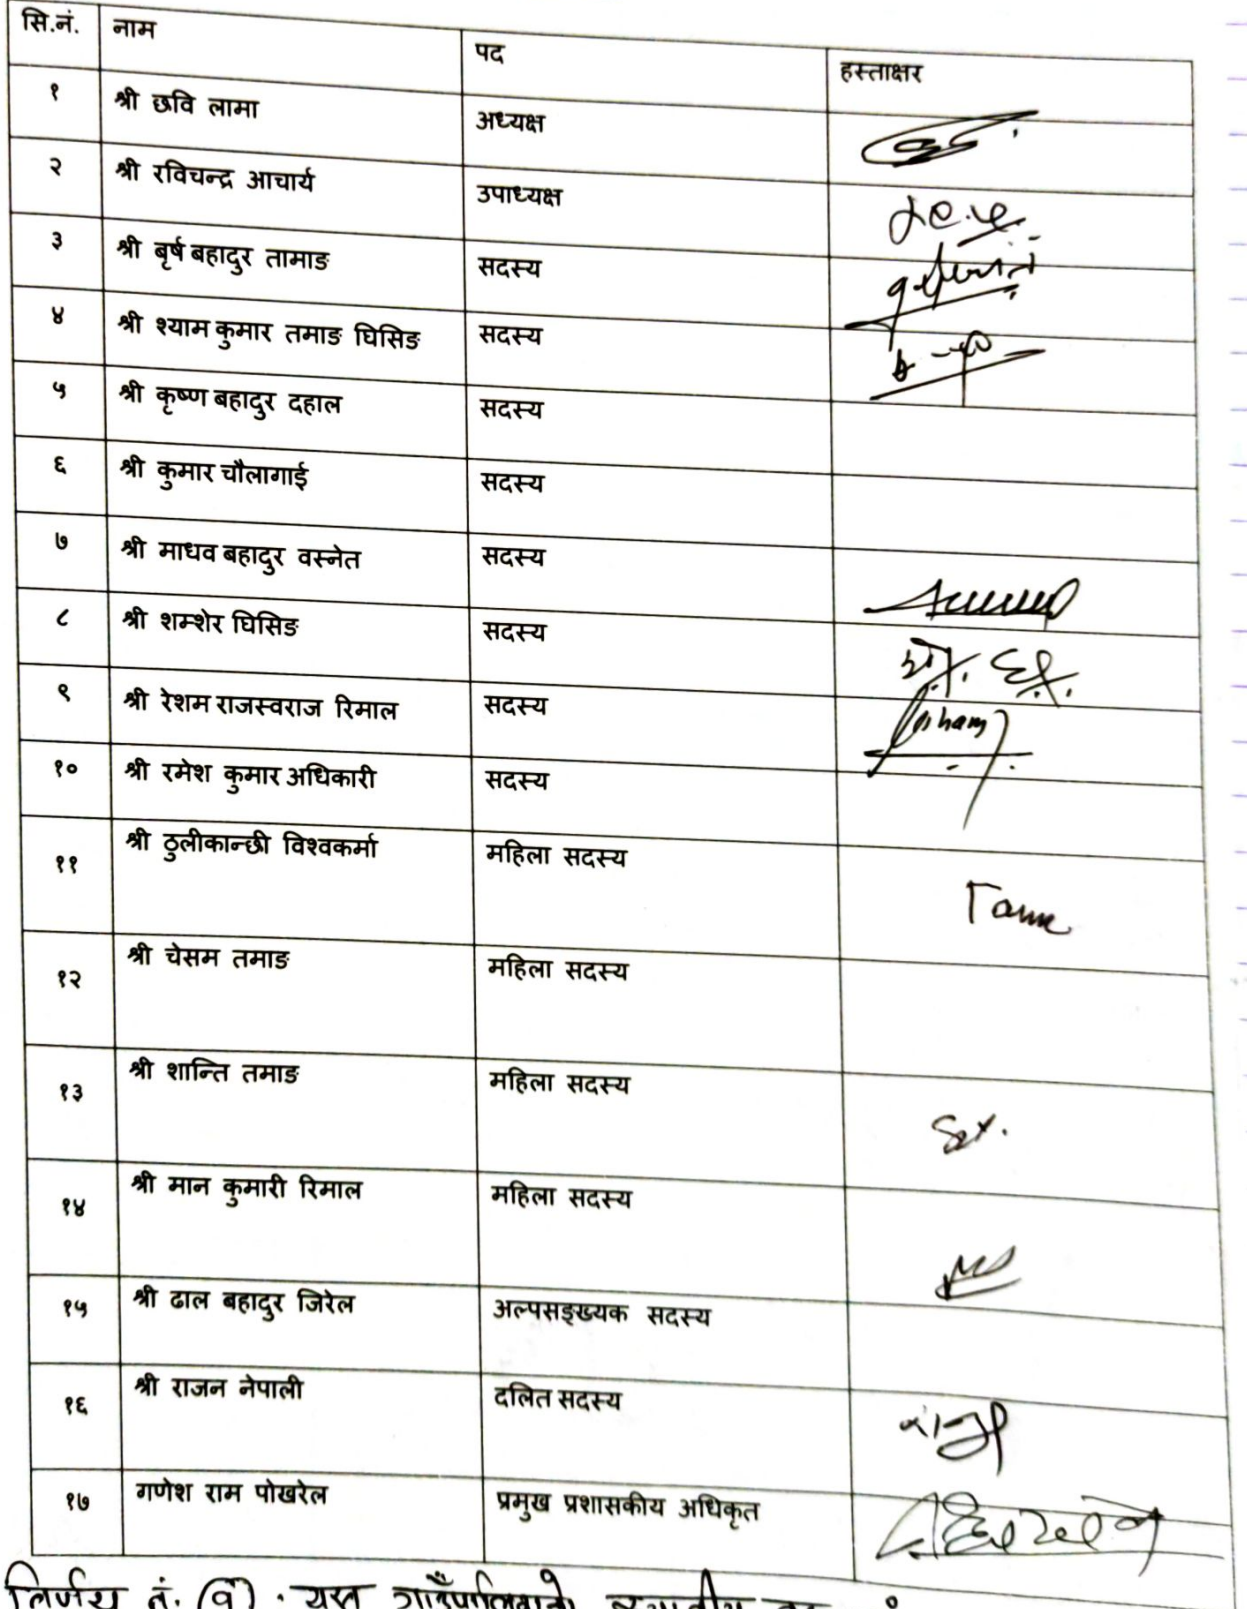 सि.नं. नाम पद हस्ताक्षर
१ श्री छवि लामा अध्यक्ष
२ श्री रविचन्द्र आचार्य उपाध्यक्ष
३ श्री बृर्ष बहादुर तामाङ सदस्य
४ श्री श्याम कुमार तमाङ घिसिङ सदस्य
५ श्री कृष्ण बहादुर दहाल सदस्य
६ श्री कुमार चौलागाई सदस्य
७ श्री माधव बहादुर वस्नेत सदस्य
८ श्री शम्शेर घिसिङ सदस्य
९ श्री रेशम राजस्वराज रिमाल सदस्य
१० श्री रमेश कुमार अधिकारी सदस्य
११ श्री ठुलीकान्छी विश्वकर्मा महिला सदस्य
१२ श्री चेसम तमाङ महिला सदस्य
१३ श्री शान्ति तमाङ महिला सदस्य
१४ श्री मान कुमारी रिमाल महिला सदस्य
१५ श्री ढाल बहादुर जिरेल अल्पसङ्ख्यक सदस्य
१६ श्री राजन नेपाली दलित सदस्य
१७ गणेश राम पोखरेल प्रमुख प्रशासकीय अधिकृत
निर्णय नं. यस गाउँपालिकाको